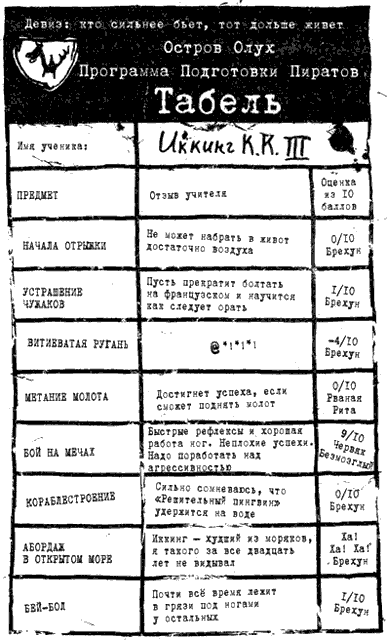 Девиз: кто сильнее бьет, тот дольше живет
Остров Олух
Программа Подготовки Пиратов
Табель
Имя ученика:
Иккинг К.К. III
ПРЕДМЕТ
Отзыв учителя
Оценка
из 10
баллов
НАЧАЛА ОТРЫЖКИ
Не может набрать в живот
достаточно воздуха
0/10
Брехун
УСТРАШЕНИЕ
ЧУЖАКОВ
Пусть прекратит болтать
на французском и научится
как следует орать
1/10
Брехун
ВИТИЕВАТАЯ РУГАНЬ
@*1*1*1
-4/10
Брехун
МЕТАНИЕ МОЛОТА
Достигнет успеха, если
сможет поднять молот
0/10
Рваная
Рита
БОЙ НА МЕЧАХ
Быстрые рефлексы и хорошая
работа ног. Неплохие успехи.
Надо поработать над
агрессивностью
9/10
Червяк
Безмозглый
КОРАБЛЕСТРОЕНИЕ
Сильно сомневаюсь, что
«Решительный пингвин»
удержится на воде
0/10
Брехун
АБОРДАЖ
В ОТКРЫТОМ МОРЕ
Иккинг — худший из моряков,
я такого за все двадцать
лет не видывал
Ха!
Ха! Ха!
Брехун
БЕЙ-БОЛ
Почти всё время лежит
в грязи под ногами
у остальных
1/10
Брехун